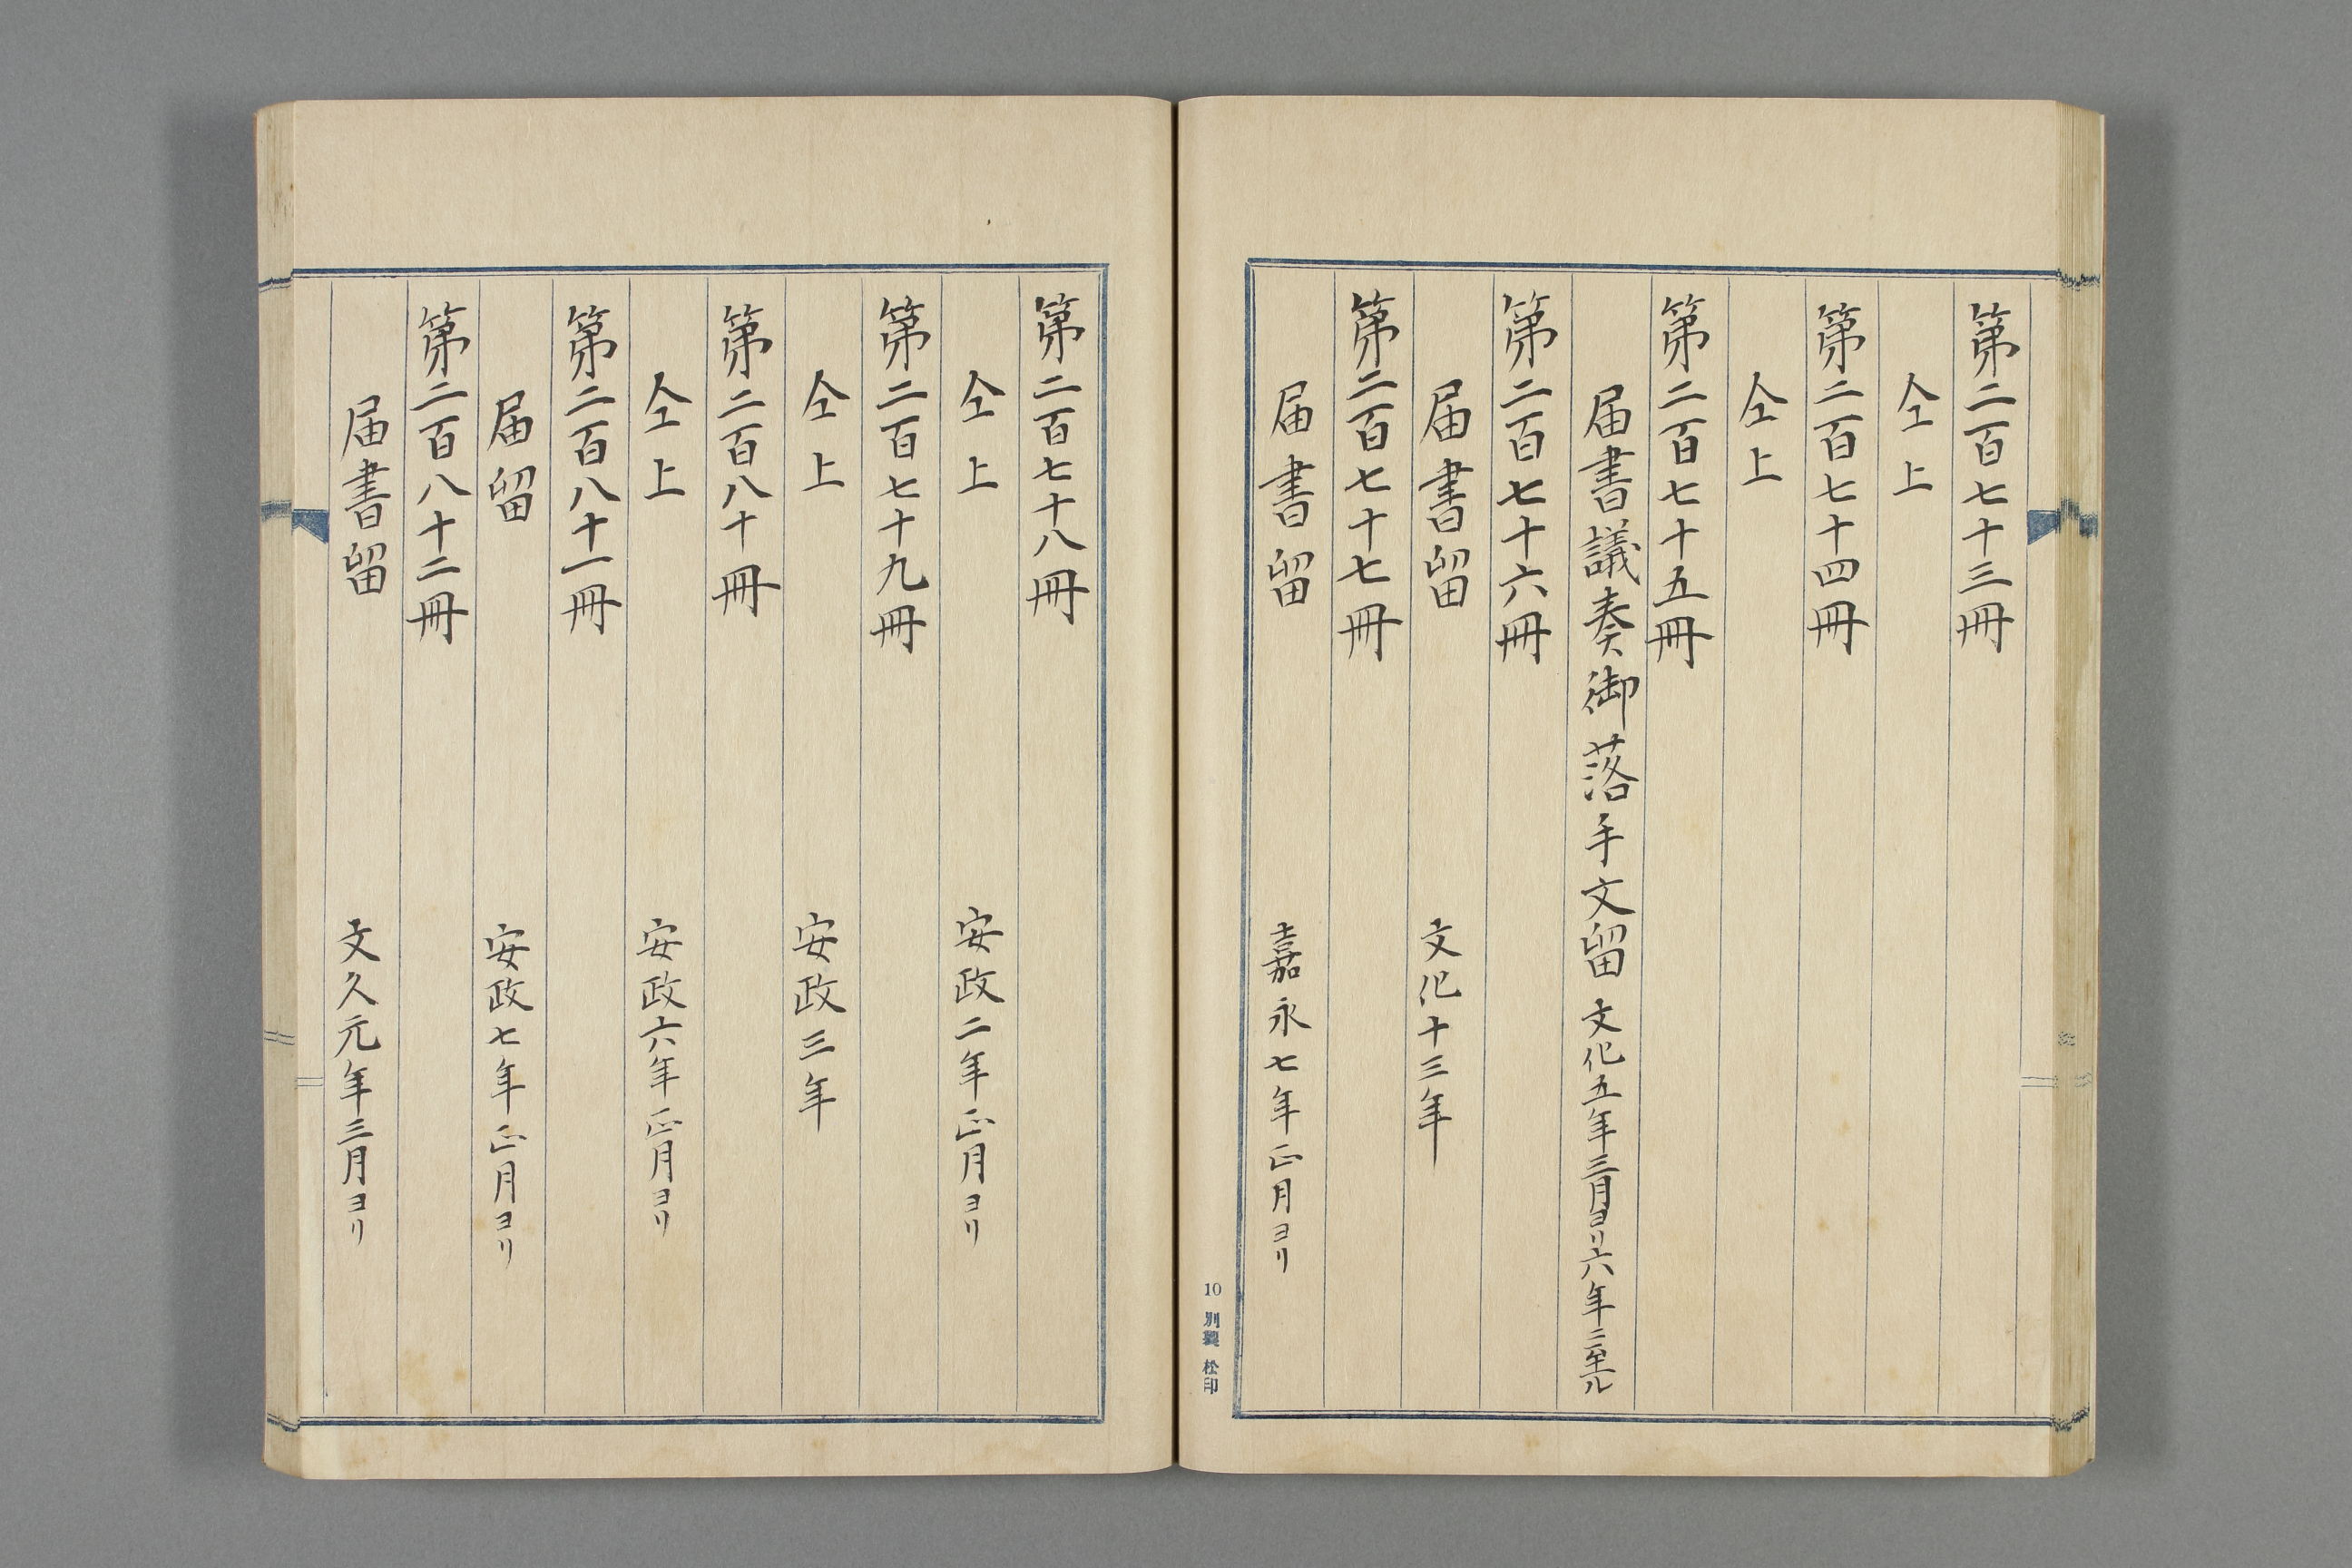 第二百七十三冊
仝上
第二百七十四冊
仝上
第二百七十五冊
届書議奏御落手文留 文化五年三月ヨリ六年ニ至ル
第二百七十六冊
届書留 文化十三年
第二百七十七冊
届書留 嘉永七年正月ヨリ
10 別製 松印
第二百七十八冊
仝上 安政二年正月ヨリ
第二百七十九冊
仝上 安政三年
第二百八十冊
仝上 安政六年正月ヨリ
第二百八十一冊
届留 安政七年正月ヨリ
第二百八十二冊
届書留 文久元年三月ヨリ